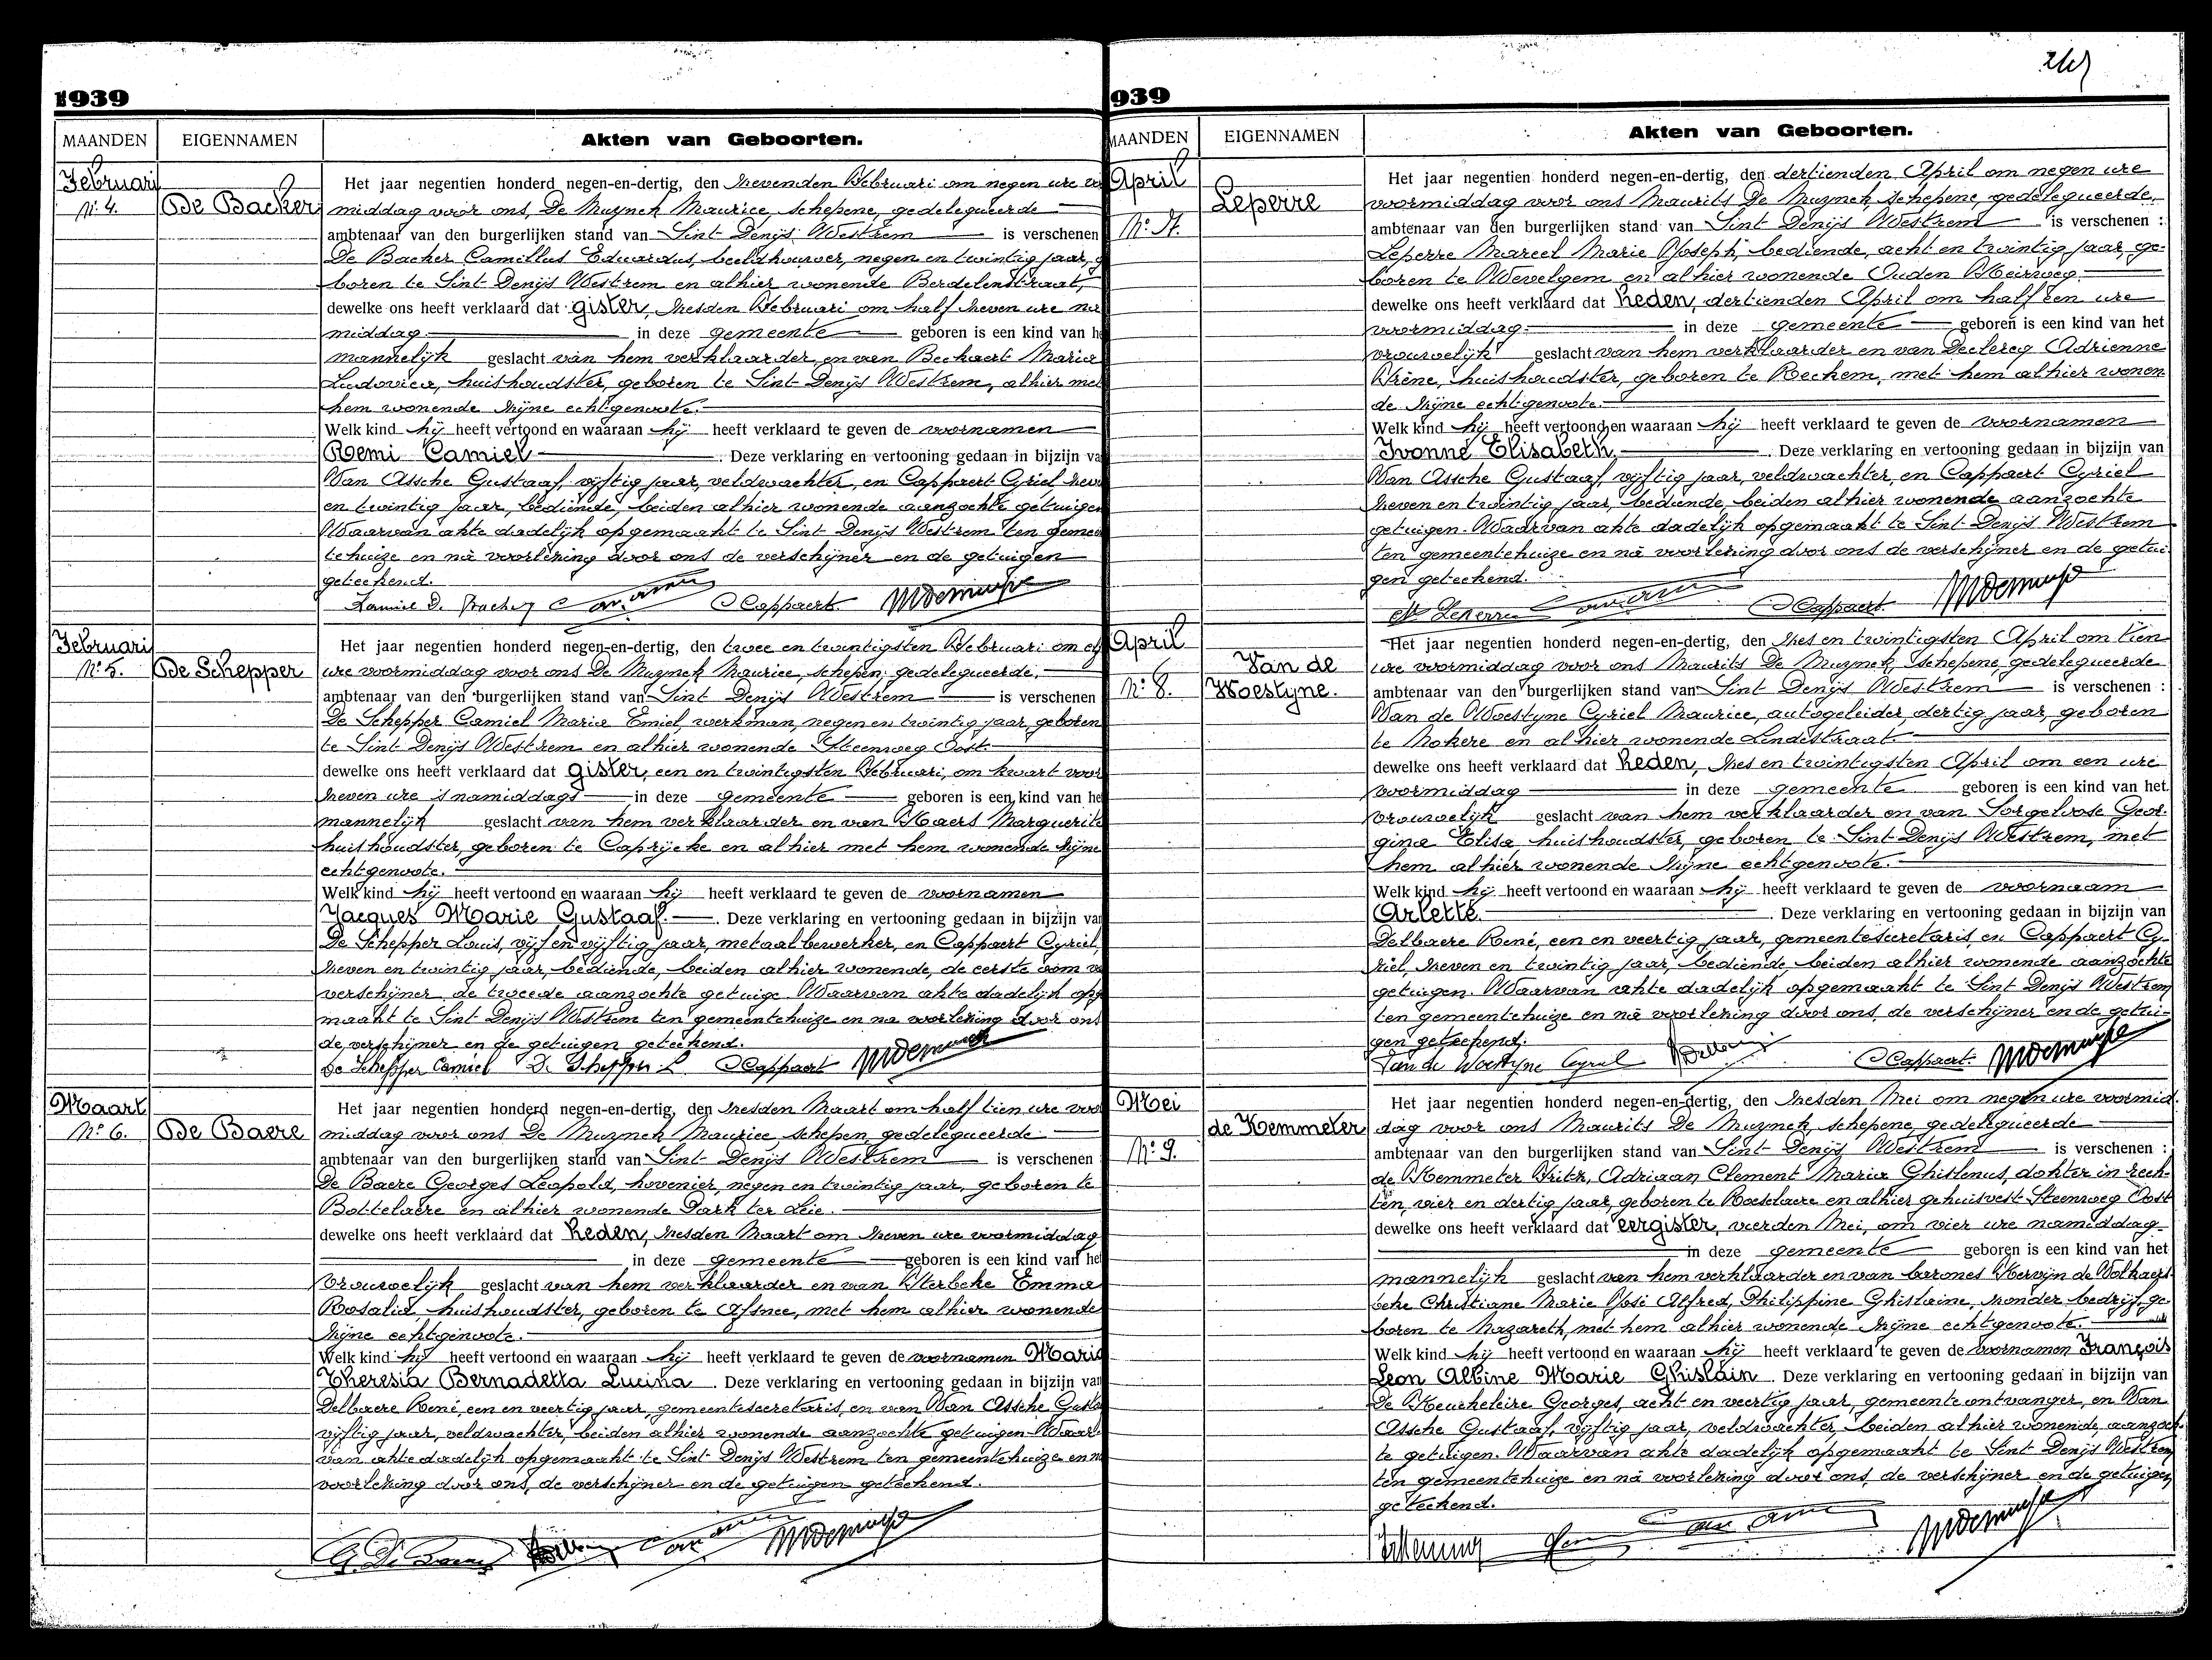 249
1939
MAANDEN
EIGENNAMEN
Akten van Geboorten.
Februari
Nr. 4.
De Backer
Het jaar negentien honderd negen-en-dertig, den zevenden Februari om negen ure
middag voor ons, De Muynck Maurice, schepene, gedelegueerde
ambtenaar van den burgerlijken stand van Sint Denijs Westrem is verschenen
De Backer Camillus Eduardus, beeldhouwer, negen en twintig jaar,
boren te Sint Denijs Westrem en alhier wonende Berdelenstraat,
dewelke ons heeft verklaard dat gister, zesden Februari om half zeven ure na
middag in deze gemeente geboren is een kind van he
mannelijk geslacht van hem verklaarder en van Beckaert Maria
Ludovica, huishoudster, geboren te Sint Denijs Westrem, alhier met
hem wonende zijne echtgenoote.
Welk kind hij heeft vertoond en waaraan hij heeft verklaard te geven de voornamen
Remi Camiel. Deze verklaring en vertooning gedaan in bijzijn va
Van Assche Gustaaf, vijftig jaar, veldwachter, en Cappaert Cyriel zeve
en twintig jaar, bediende, beiden alhier wonende aanzochte getuigen
Waarvan akte dadelijk opgemaakt te Sint Denijs Westrem ten gemee
tehuize en na voorlezing door ons de verschijner en de getuigen
geteekend.
Camiel De Backer
C Cappaert
MDemuynck
Februari
Nr. 5.
De Schepper
Het jaar negentien honderd negen-en-dertig, den twee en twintigsten Februari om elf
ure voormiddag voor ons De Muynck Maurice, schepen, gedelegueerde.
ambtenaar van den burgerlijken stand van Sint Denijs Westrem is verschenen
De Schepper Camiel Marie Emiel, werkman, negen en twintig jaar, geboren
te Sint Denijs Westrem en alhier wonende Steenweg Oost
dewelke ons heeft verklaard dat gister, een en twintigsten Februari, om kwart voor
zeven ure 's namiddags in deze gemeente geboren is een kind van he
mannelijk geslacht van hem verklaarder en van Haers Marguerite
huishoudster, geboren te Caprijcke en alhier met hem wonende zijne
echtgenoote.
Welk kind hij heeft vertoond en waaraan hij heeft verklaard te geven de voornamen
Jacques Marie Gustaaf. Deze verklaring en vertooning gedaan in bijzijn van
De Schepper Louis, vijf en vijftig jaar, metaalbewerker, en Cappaert Cyriel,
zeven en twintig jaar, bediende, beiden alhier wonende, de eerste oom v
verschijner de tweede aanzochte getuige. Waarvan akte dadelijk opg
maakt te Sint Denijs Westrem ten gemeentehuize en na voorlezing door ons
de verschijner en de getuigen geteekend.
De Schepper Camiel De Schepper L. C Cappaert MDemuynck
Maart
Nr. 6.
De Baere
Het jaar negentien honderd negen-en-dertig, den zesden Maart om half tien ure voor
middag voor ons De Muynck Maurice, schepen, gedelegueerde
ambtenaar van den burgerlijken stand van Sint Denijs Westrem is verschenen
De Baere Georges Leopold, hovenier, negen en twintig jaar, geboren te
Bottelaere en alhier wonende Park ter Leie.
dewelke ons heeft verklaard dat heden, zesden Maart om zeven ure voormiddag
in deze gemeente geboren is een kind van he
vrouwelijk geslacht van hem verklaarder en van Sterbeke Emma
Rosalia, huishoudster, geboren te Afsnee, met hem alhier wonende
zijne echtgenoote.
Welk kind hij heeft vertoond en waaraan hij heeft verklaard te geven de voornamen Maria
Theresia Bernadetta Lucina. Deze verklaring en vertooning gedaan in bijzijn van
Delbaere René, een en veertig jaar, gemeentesecretaris, en van Van Assche Gusta
vijftig jaar, veldwachter, beiden alhier wonende aanzochte getuigen. Waar
van akte dadelijk opgemaakt te Sint Denijs Westrem ten gemeentehuize en n
voorlezing door ons, de verschijner en de getuigen geteekend.
G. De Baere
MDemuynck
939
MAANDEN
EIGENNAMEN
Akten van Geboorten.
April
Nr. 7.
Leperre
Het jaar negentien honderd negen-en-dertig, den dertienden April om negen ure
voormiddag voor ons Maurits De Muynck, schepene, gedelegueerde,
ambtenaar van den burgerlijken stand van Sint Denijs Westrem is verschenen :
Leperre Marcel Marie Joseph, bediende, acht en twintig jaar, ge-
boren te Wevelgem en alhier wonende Ouden Heirweg.
dewelke ons heeft verklaard dat heden, dertienden April om half een ure
voormiddag. in deze gemeente geboren is een kind van het
vrouwelijk geslacht van hem verklaarder en van Declercq Adrienne
Irène, huishoudster, geboren te Reckem, met hem alhier wonen
de zijne echtgenoote.
Welk kind hij heeft vertoond en waaraan hij heeft verklaard te geven de voornamen
Ivonne Elisabeth. Deze verklaring en vertooning gedaan in bijzijn van
Van Assche Gustaaf, vijftig jaar, veldwachter, en Cappaert Cyriel
zeven en twintig jaar, bediende, beiden alhier wonende aanzochte
getuigen. Waarvan akte dadelijk opgemaakt te Sint Denijs Westrem
ten gemeentehuize en na voorlezing door ons de verschijner en de getui-
gen geteekend.
M Leperre
C Cappaert
MDemuynck
April
Nr. 8.
Van de
Woestyne.
Het jaar negentien honderd negen-en-dertig, den zes en twintigsten April om tien
ure voormiddag voor ons Maurits De Muynck, schepene, gedelegueerde
ambtenaar van den burgerlijken stand van Sint Denijs Westrem is verschenen :
Van de Woestyne Cyriel Maurice, autogeleider, dertig jaar, geboren
te Nokere en alhier wonende Lindestraat.
dewelke ons heeft verklaard dat heden, zes en twintigsten April om een ure
voormiddag in deze gemeente geboren is een kind van het
vrouwelijk geslacht van hem verklaarder en van Sorgeloose Geor-
gina Elisa huishoudster, geboren te Sint Denijs Westrem, met
hem alhier wonende zijne echtgenoote.
Welk kind hij heeft vertoond en waaraan hij heeft verklaard te geven de voornaam
Arlette. Deze verklaring en vertooning gedaan in bijzijn van
Delbaere René, een en veertig jaar, gemeentesecretaris, en Cappaert Cy-
riel, zeven en twintig jaar, bediende, beiden alhier wonende aanzochte
getuigen. Waarvan akte dadelijk opgemaakt te Sint Denijs Westrem
ten gemeentehuize en na voorlezing door ons, de verschijner en de getui-
gen geteekend.
Van de Woestyne Cyriel
C Cappaert. MDemuynck
Mei
Nr. 9.
de Hemmeter
Het jaar negentien honderd negen-en-dertig, den zesden Mei om negen ure voormid.
dag voor ons Maurits De Muynck, schepene, gedelegueerde
ambtenaar van den burgerlijken stand van Sint Denijs Westrem is verschenen :
de Hemmeter Fritz, Adriaan Clement Maria Ghislenus, dokter in rech-
ten, vier en dertig jaar, geboren te Roeselaere en alhier gehuisvest Steenweg Oost
dewelke ons heeft verklaard dat eergister, vierden Mei, om vier ure namiddag
in deze gemeente geboren is een kind van het
mannelijk geslacht van hem verklaarder en van barones Kervijn de Volkaers-
beke Christiane Marie José Alfred, Philippine Ghislaine, zonder bedrijf, ge-
boren te Nazareth, met hem alhier wonende zijne echtgenoote.
Welk kind hij heeft vertoond en waaraan hij heeft verklaard te geven de voornamen François
Leon Albine Marie Ghislain. Deze verklaring en vertooning gedaan in bijzijn van
De Keuckeleire Georges, acht en veertig jaar, gemeenteontvanger, en Van
Assche Gustaaf, vijftig jaar, veldwachter, beiden alhier wonende, aanzoch-
te getuigen. Waarvan akte dadelijk opgemaakt te Sint Denijs Westrem
ten gemeentehuize en na voorlezing door ons, de verschijner en de getuigen
geteekend.
MDemuynck